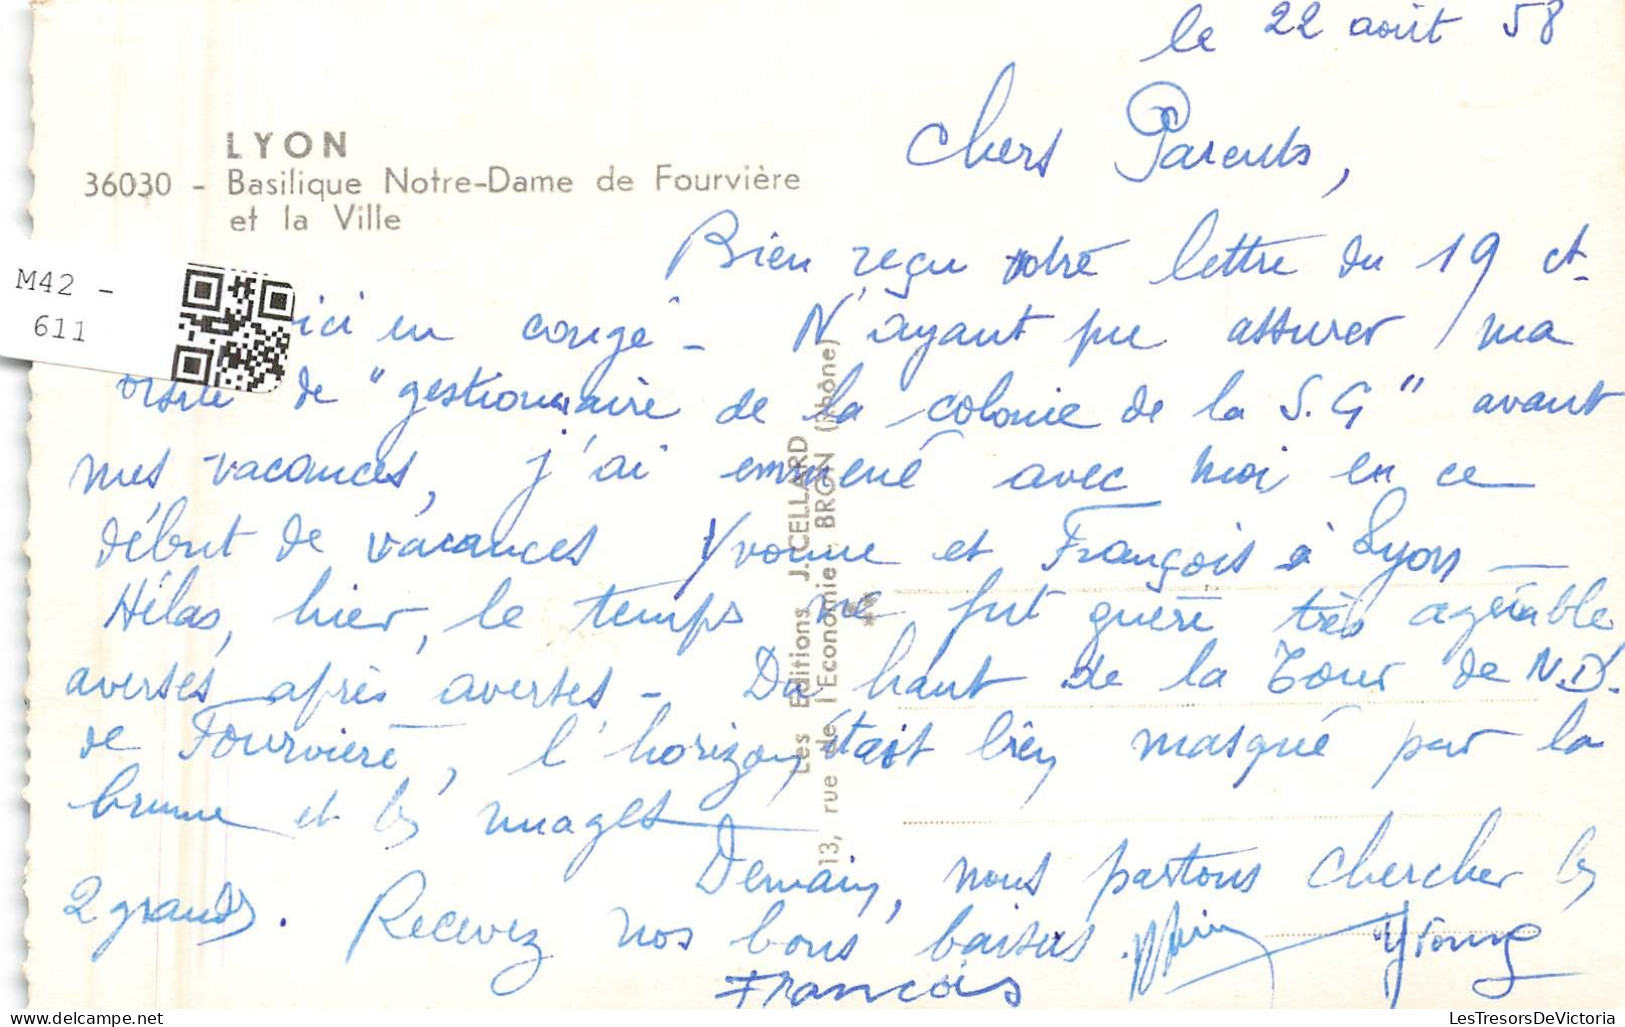 le 22 août 58
LYON
36030 - Basilique Notre-Dame de Fourvière
et la Ville
Chers Parents,
Bien reçu votre lettre du 19 ct
M42 -
611
ici en congé - N'ayant pu assurer ma
de "gestionnaire de la colonie de la S.G" avant
mes vacances, j'ai emmené avec moi en ce
début de vacances Yvonne et François à Lyon -
Hélas, hier, le temps ne fut guère très agréable
averses après averses - Du haut de la Tour de N.D.
de Fourvière, l'horizon était bien masqué par la
brume et les nuages
Demain, nous partons chercher les
2 grands. Recevez nos bons baisers Yvonne
François
Les Editions J. CELLARD
13, rue de l'Economie BRON (Rhône)
LesTresorsDeVictoria
www.delcampe.net